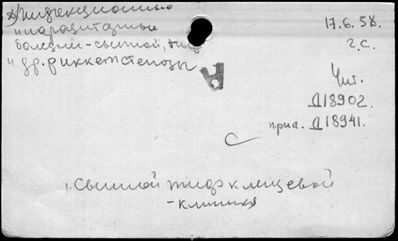 Инфекционные
и паразитарные
болезни - сыпной, тиф
и др. риккетсиозы
17.6.58.
г.с.
А
Чит.
Д18902.
прил. Д18941.
1. Сыпной тиф клещевой
- клиника